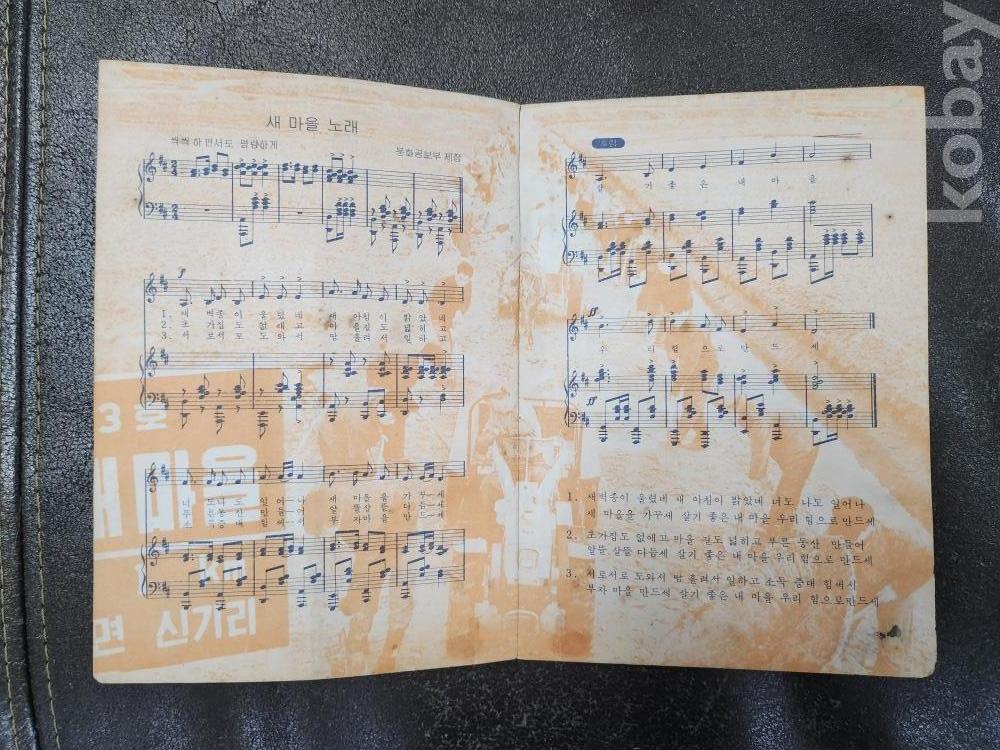 새 마을 노래
씩씩하면서도 명랑하게
문화공보부 제정
1. 새 벽종이 울렸네 새 아침이 밝았네
2. 초 가집도 없애고 마 을길도 넓히고
3. 서 로서로 도와서 땀 흘려서 일하고
너 도나도 일어—나 새 마을을 가꾸—세
푸 른동산 만들—어 알 뜰살뜰 다듬—세
소 득증대 힘써—서 부 자마을 만드—세
3 호
새마을
면 신기리
후렴
살 기 좋 은 내 마 을
우 리 힘 으 로 만 드 세
1. 새벽종이 울렸네 새 아침이 밝았네 너도 나도 일어나
새 마을을 가꾸세 살기 좋은 내 마을 우리 힘으로 만드세
2. 초가집도 없애고 마을 길도 넓히고 푸른 동산 만들어
알뜰 살뜰 다듬세 살기 좋은 내 마을 우리 힘으로 만드세
3. 서로서로 도와서 땀 흘려서 일하고 소득 증대 힘써서
부자 마을 만드세 살기 좋은 내 마을 우리 힘으로만드세
kobay